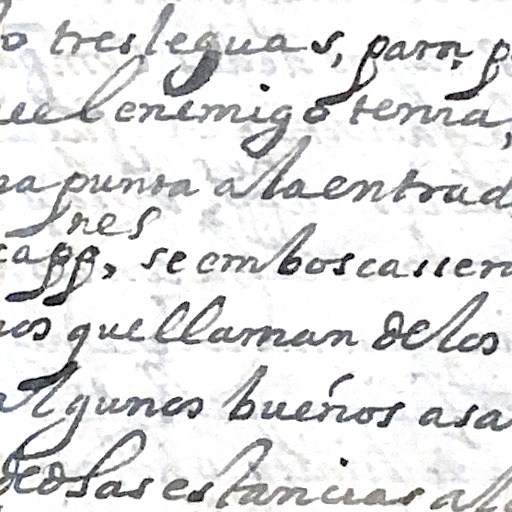 o tres leguas, para, p
el enemigo tenia,
na punta a la entrad
capp.nes, se emboscassen
nos que llaman de los
algunos buenos a sa
de dhas estancias al